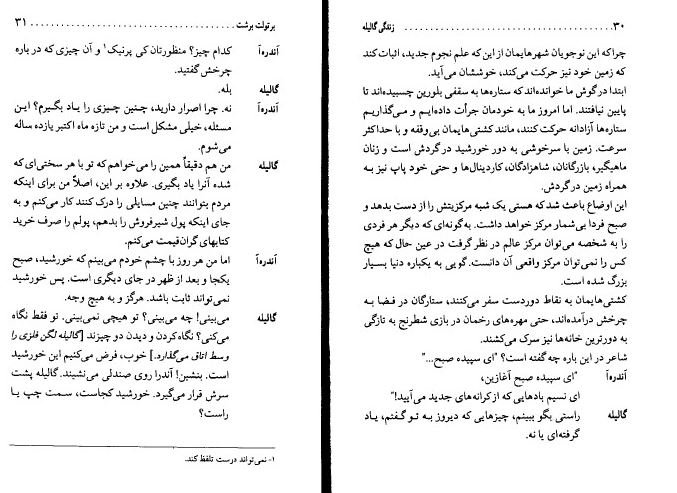 ۳۰ زندگی گالیله
چراکه این نوجویان شهرهایمان از این که علم نجوم جدید، اثبات کند
که زمین خود نیز حرکت می‌کند، خوششان می‌آید.
ابتدا درگوش ما خوانده‌اند که ستاره‌ها به سقفی بلورین چسبیده‌اند تا
پایین نیافتند. اما امروز ما به خودمان جرأت داده‌ایم و می‌گذاریم
ستاره‌ها آزادانه حرکت کنند، مانند کشتی‌هایمان بی‌وقفه و با حداکثر
سرعت. زمین با سرخوشی به دور خورشید در گردش است و زنان
ماهیگیر، بازرگانان، شاهزادگان، کاردینال‌ها و حتی خود پاپ نیز به
همراه زمین درگردش.
این اوضاع باعث شد که هستی یک شبه مرکزیتش را از دست بدهد و
صبح فردا بی‌شمار مرکز خواهد داشت. به‌گونه‌ای که دیگر هر فردی
را به شخصه می‌توان مرکز عالم در نظر گرفت در عین حال که هیچ
کس را نمی‌توان مرکز واقعی آن دانست. گویی به یکباره دنیا بسیار
بزرگ شده است.
کشتی‌هایمان به نقاط دوردست سفر می‌کنند، ستارگان در فضا به
چرخش درآمده‌اند، حتی مهره‌های رخمان در بازی شطرنج به تازگی
به دورترین خانه‌ها نیز سرک می‌کشند.
شاعر در این باره چه گفته است؟ "ای سپیده صبح..."
آندره‌آ "ای سپیده صبح آغازین،
ای نسیم بادهایی که از کرانه‌های جدید می‌آیید!"
گالیله راستی بگو ببینم، چیزهایی که دیروز به تو گفتم، یاد
گرفته‌ای یا نه.
برتولت برشت ۳۱
آندره‌آ کدام چیز؟ منظورتان کی پرنیک۱ و آن چیزی که در باره
چرخش گفتید.
گالیله بله.
آندره‌آ نه. چرا اصرار دارید، چنین چیزی را یاد بگیرم؟ این
مسئله، خیلی مشکل است و من تازه ماه اکتبر یازده ساله
می‌شوم.
گالیله من هم دقیقاً همین را می‌خواهم که تو با هر سختی‌ای که
شده آنرا یاد بگیری. علاوه بر این، اصلاً من برای اینکه
مردم بتوانند چنین مسایلی را درک کنند کار می‌کنم و به
جای اینکه پول شیرفروش را بدهم، پولم را صرف خرید
کتابهای گران‌قیمت می‌کنم.
آندره‌آ اما من هر روز با چشم خودم می‌بینم که خورشید، صبح
یکجا و بعد از ظهر در جای دیگری است. پس خورشید
نمی‌تواند ثابت باشد. هرگز و به هیچ وجه.
گالیله می‌بینی! چه می‌بینی؟ تو هیچی نمی‌بینی. تو فقط نگاه
می‌کنی؟ نگاه کردن و دیدن دو چیزند [گالیله لگن فلزی را
وسط اتاق می‌گذارد.] خوب، فرض می‌کنیم این خورشید
است. بنشین! آندرا روی صندلی می‌نشیند. گالیله پشت
سرش قرار می‌گیرد. خورشید کجاست، سمت چپ یا
راست؟
۱- نمی‌تواند درست تلفظ کند.